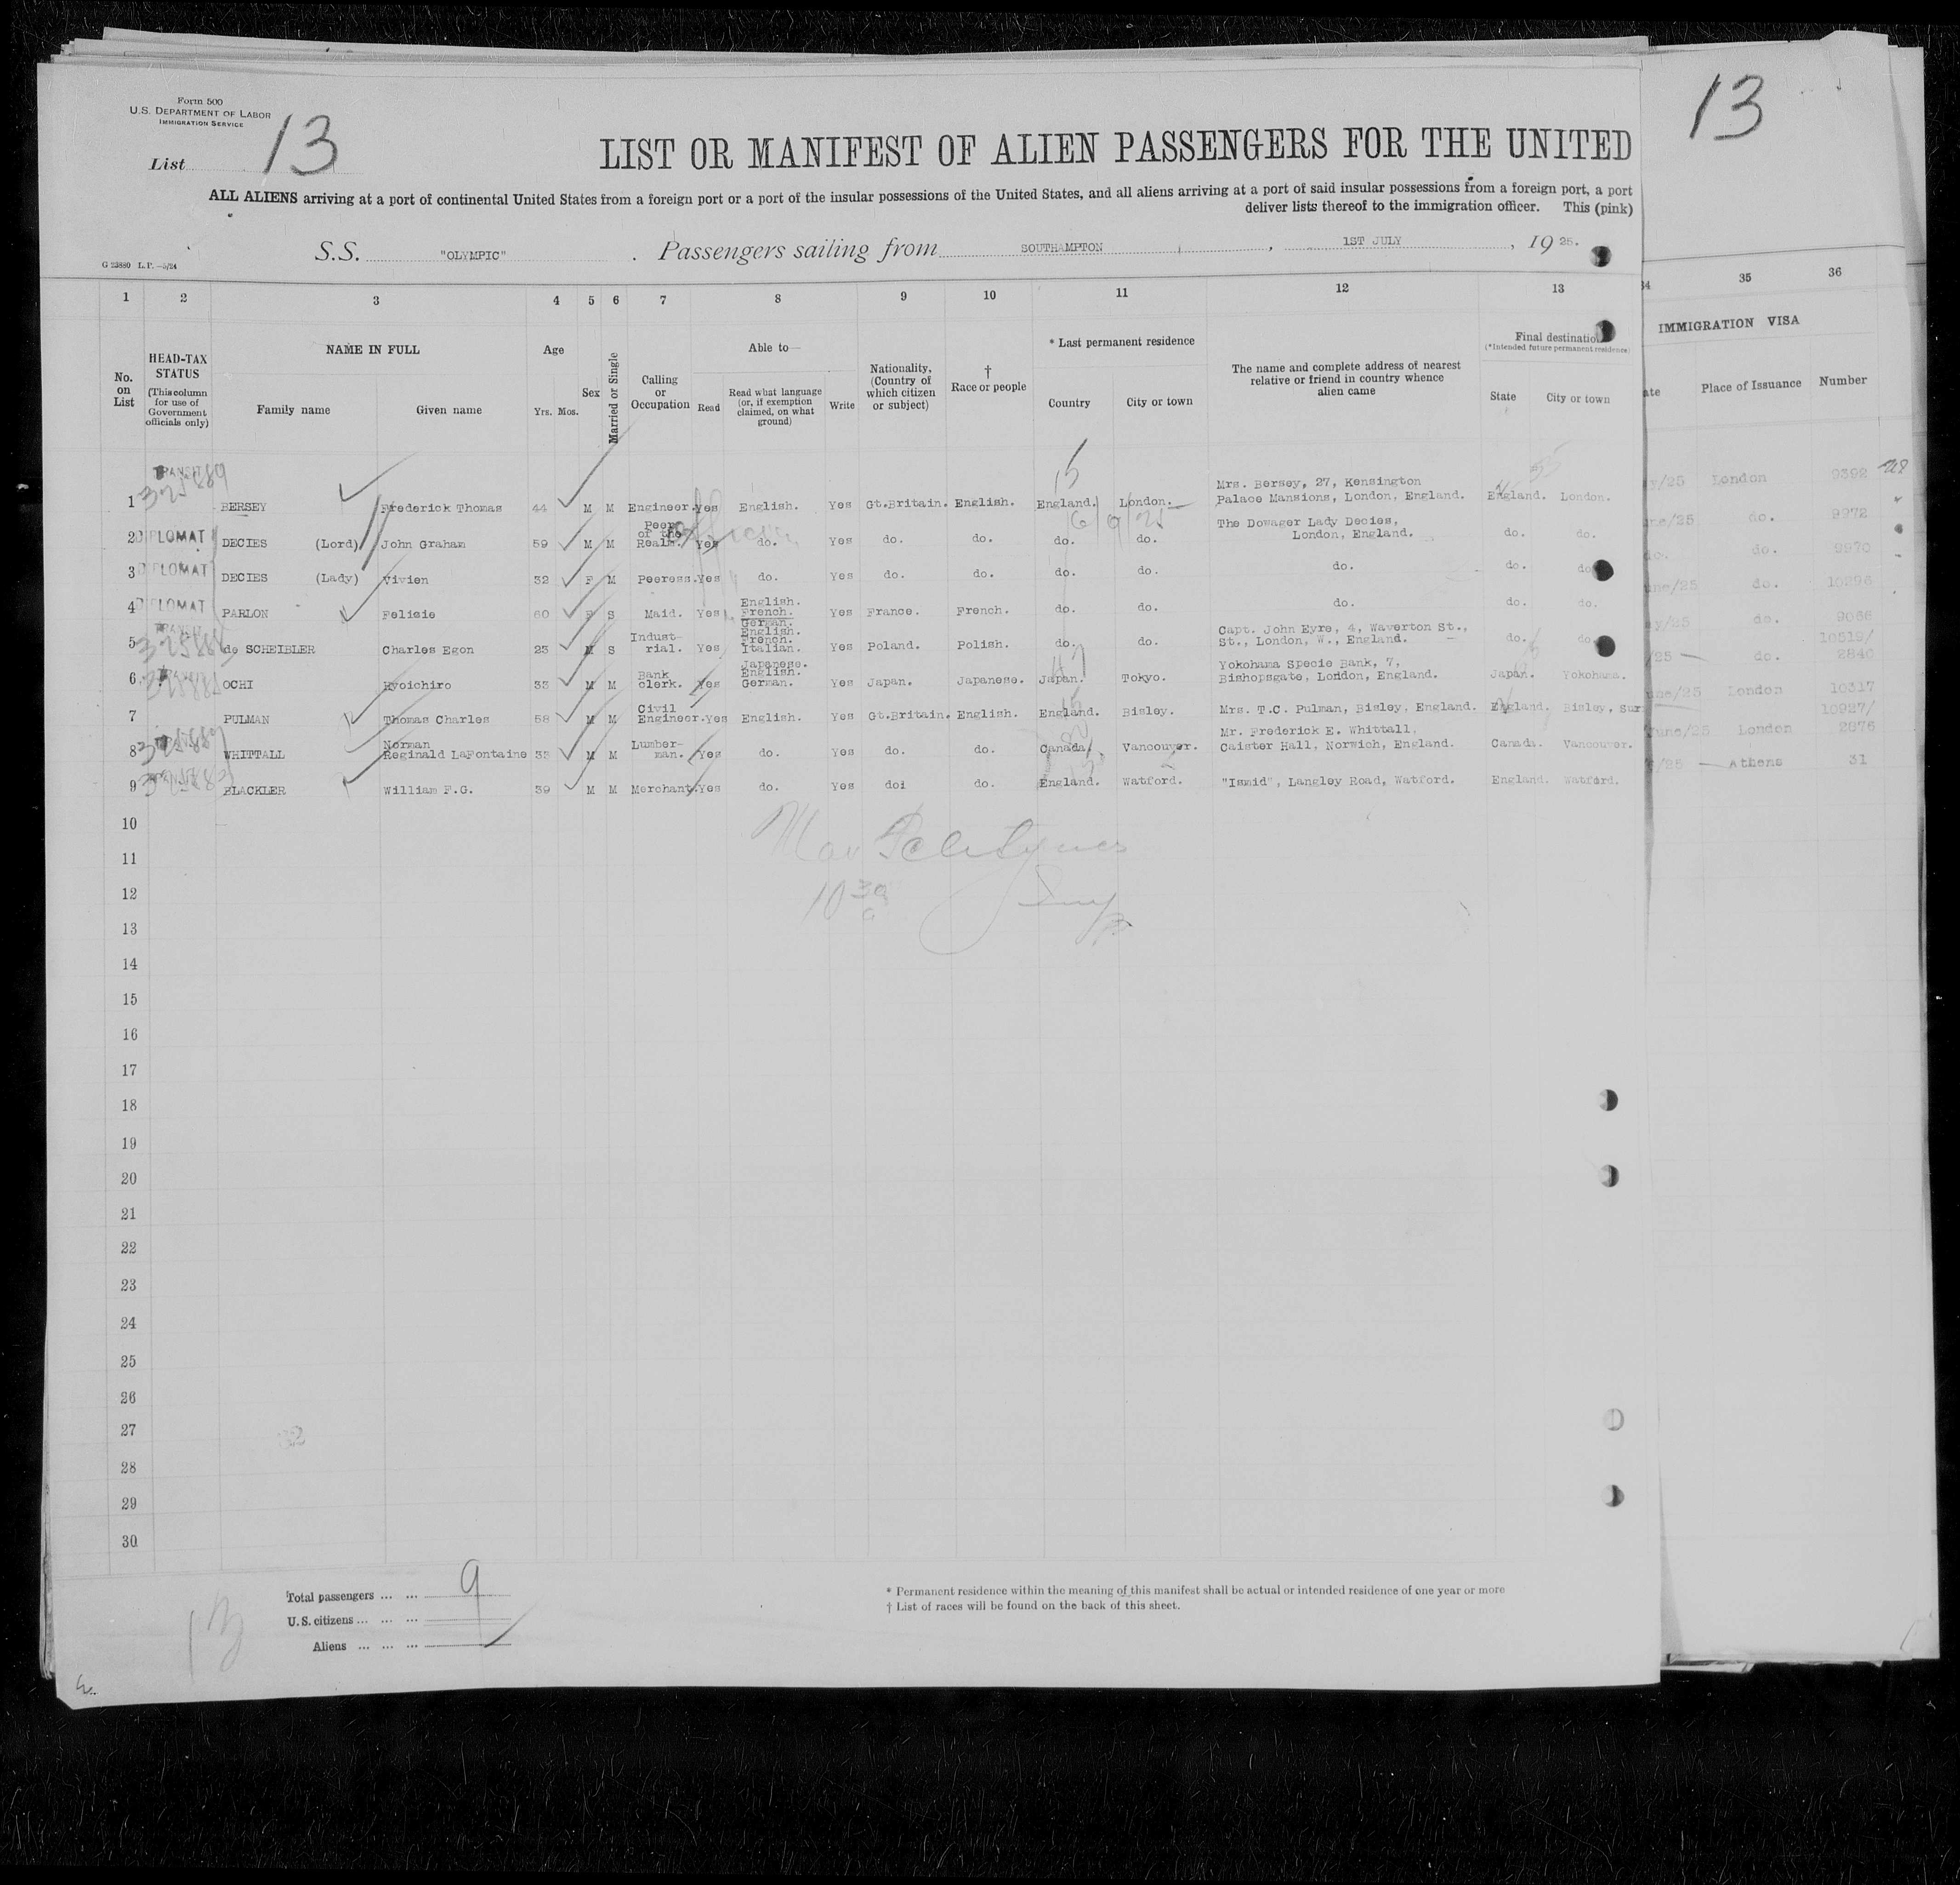 Form 500
U.S. DEPARTMENT OF LABOR
IMMIGRATION SERVICE
List 13
13
LIST OR MANIFEST OF ALIEN PASSENGERS FOR THE UNITED
ALL ALIENS arriving at a port of continental United States from a foreign port or a port of the insular possessions of the United States, and all aliens arriving at a port of said insular possessions from a foreign port, a port
deliver lists thereof to the immigration officer. This (pink)
S.S. "OLYMPIC" . Passengers sailing from SOUTHAMPTON , 1ST JULY , 19 25.
G 23880 L. P.—5/24
1 2 3 4 5 6 7 8 9 10 11 12 13 34 35 36
No. on List
HEAD-TAX STATUS
(This column for use of Government officials only)
NAME IN FULL
Family name Given name
Age
Yrs. Mos.
Sex
Married or Single
Calling or Occupation
Able to—
Read
Read what language (or, if exemption claimed, on what ground)
Write
Nationality, (Country of which citizen or subject)
† Race or people
* Last permanent residence
Country City or town
The name and complete address of nearest relative or friend in country whence alien came
Final destination
(*Intended future permanent residence)
State City or town
IMMIGRATION VISA
ate Place of Issuance Number
1 TRANSIT BERSEY Frederick Thomas 44 M M Engineer. Yes English. Yes Gt.Britain. English. England. London. Mrs. Bersey, 27, Kensington Palace Mansions, London, England. England. London.
2 DIPLOMAT DECIES (Lord) John Graham 59 M M Peer of the Realm. Yes do. Yes do. do. do. do. The Dowager Lady Decies, London, England. do. do.
3 DIPLOMAT DECIES (Lady) Vivien 32 F M Peeress. Yes do. Yes do. do. do. do. do. do. do.
4 DIPLOMAT PARLON Felicie 60 F S Maid. Yes English. French. Yes France. French. do. do. do. do. do.
5 TRANSIT de SCHEIBLER Charles Egon 23 M S Industrial. Yes German. English. French. Italian. Yes Poland. Polish. do. do. Capt. John Eyre, 4, Waverton St., St., London, W., England. do. do.
6 OCHI Kyoichiro 33 M M Bank clerk. Yes Japanese. English. German. Yes Japan. Japanese. Japan. Tokyo. Yokohama Specie Bank, 7, Bishopsgate, London, England. Japan. Yokohama.
7 PULMAN Thomas Charles 58 M M Civil Engineer. Yes English. Yes Gt.Britain. English. England. Bisley. Mrs. T.C. Pulman, Bisley, England. England. Bisley, Sur
8 WHITTALL Norman Reginald LaFontaine 33 M M Lumber-man. Yes do. Yes do. do. Canada. Vancouver. Mr. Frederick E. Whittall, Caister Hall, Norwich, England. Canada. Vancouver.
9 BLACKLER William F.G. 39 M M Merchant. Yes do. Yes doi do. England. Watford. "Ismid", Langley Road, Watford. England. Watford.
y/25 London 9392
ne/25 do. 9272
do. do. 9970
une/25 do. 10296
y/25 do. 9066
10519/
/25 — do. 2840
une/25 London 10317
10927/
June/25 London 2876
/25 — Athens 31
10
11
12
13
14
15
16
17
18
19
20
21
22
23
24
25
26
27
28
29
30
Total passengers ... ... 9
U.S. citizens ... ... ...
Aliens ... ... ...
* Permanent residence within the meaning of this manifest shall be actual or intended residence of one year or more
† List of races will be found on the back of this sheet.